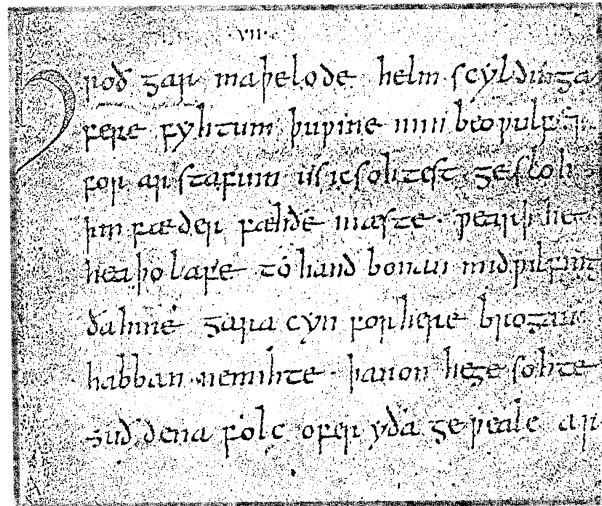 ·VII·
Hroð gar maþelode helm scyldinga
fere fyhtum þu ƿine min beoƿulf ⁊
for ar stafum usic sohtest· ge sloh
þin fæder fæhðe mæste· ƿearþ he
heaþo lafe to hand bonan mid ƿilfing
ða hine gara cyn for here brogan
habban ne mihte· þanon he ge sohte
suð dena folc ofer yða ge ƿealc ar